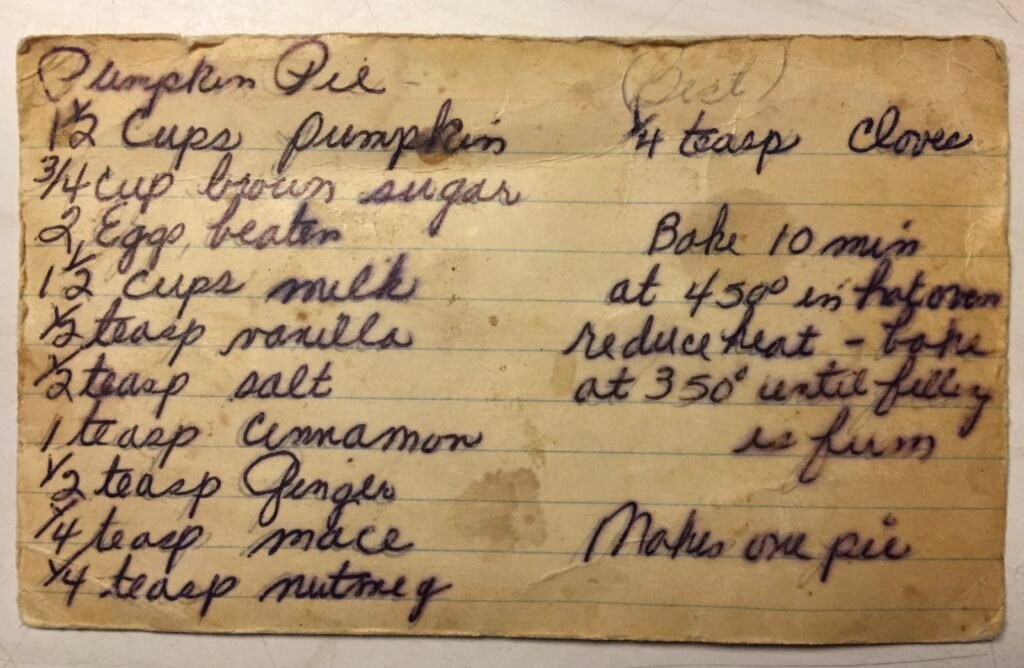 Pumpkin Pie
1 1/2 Cups pumpkin
3/4 cup brown sugar
2 Eggs, beaten
1 1/2 cups milk
1/2 teasp vanilla
1/2 teasp salt
1 teasp cinnamon
1/2 teasp Ginger
1/4 teasp mace
1/4 teasp nutmeg
(Best)
1/4 teasp Cloves
Bake 10 min
at 450° in hot oven
reduce heat - bake
at 350° until filling
is firm
Makes one pie